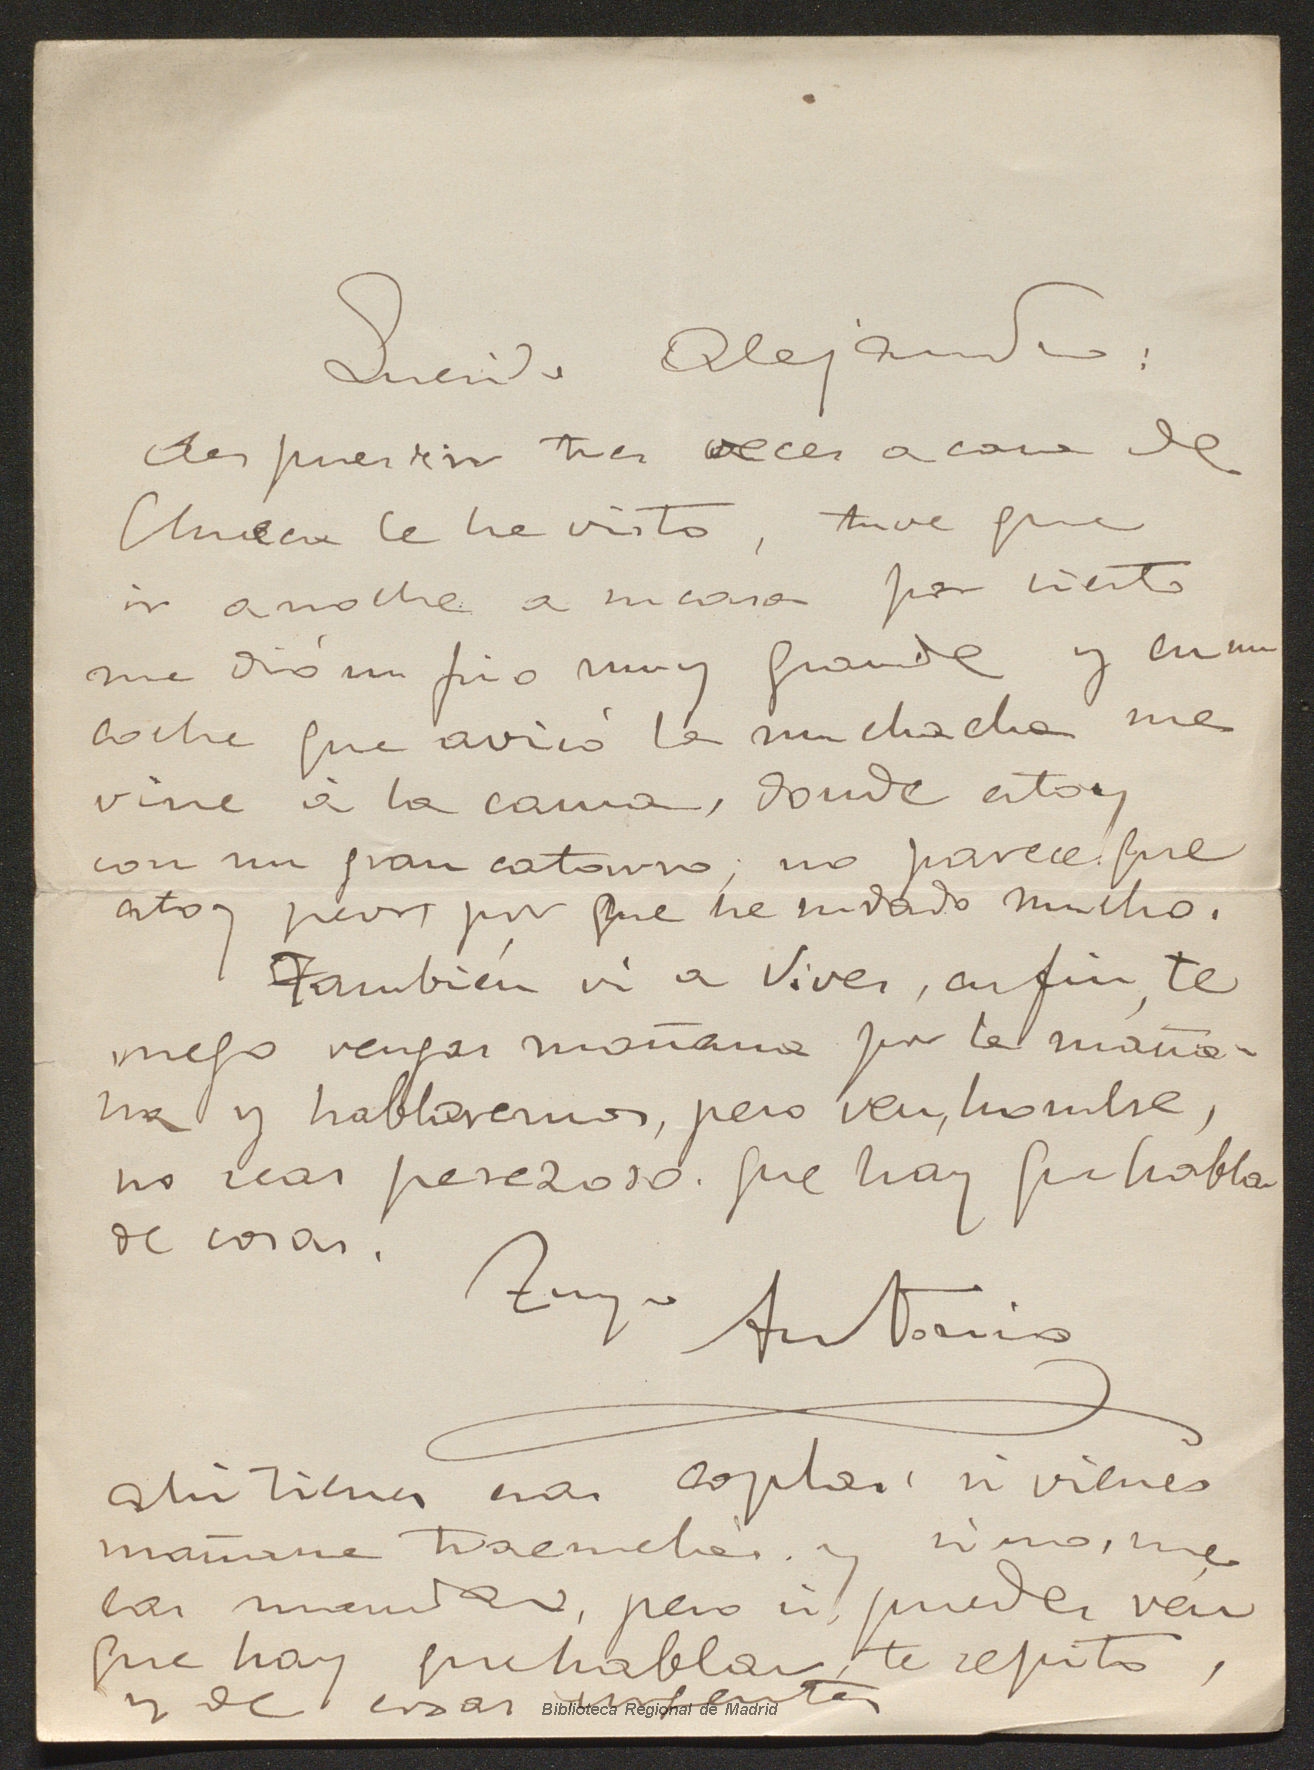 Querido Alejandro:
despues de ir tres veces a casa de
Chueca le he visto, tuve que
ir anoche a su casa por cierto
me dió un frio muy grande y en un
coche que avisó la muchacha me
vine á la cama, donde estoy
con un gran catarro; no parece que
estoy peor, por que he sudado mucho.
También vi a Vives, en fin, te
ruego vengas mañana por la maña-
na y hablaremos, pero ven, hombre,
no seas perezoso. que hay que habla
de cosas.
Tuyo
Antonio
ahi tienes esas coplas, si vienes
mañana traemelas. y si no, me
las mandas, pero si puedes ven
que hay que hablar, te repito,
y de cosas urgentes
Biblioteca Regional de Madrid